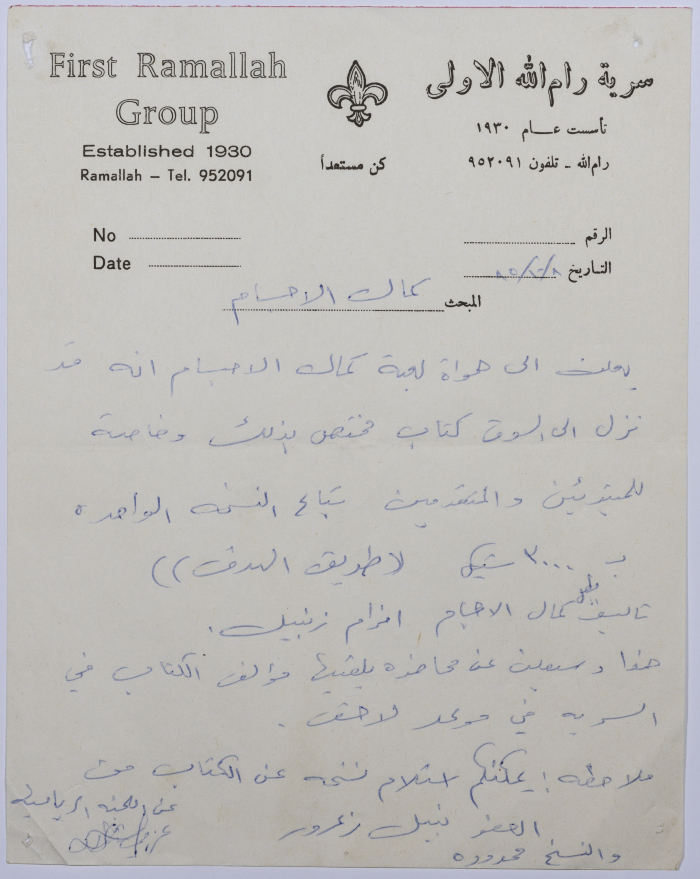 First Ramallah
Group
Established 1930
Ramallah – Tel. 952091
سرية رام الله الاولى
تأسست عام ١٩٣٠
رام الله - تلفون ٩٥٢٠٩١
كن مستعداً
No
Date
الرقم
التاريخ
المبحث كمال الاجسام
يعلن الى هواة لعبة كمال الاجسام انه قد
نزل الى السوق كتاب مختص بذلك وخاصة
للمبتدئين والمتقدمين تباع النسخه الواحده
ب ٣٠٠٠ شيكل الهدف ))
تاليف بطل كمال الاجسام
هذا وسيعلن عن محاضره يلقيها مؤلف الكتاب في
السريه في موعد لاحق .
ملاحظه : يمكنكم استلام نسخه عن الكتاب من
العضو نبيل زعرور
والنسخ محدوده
عن اللجنه الرياضيه